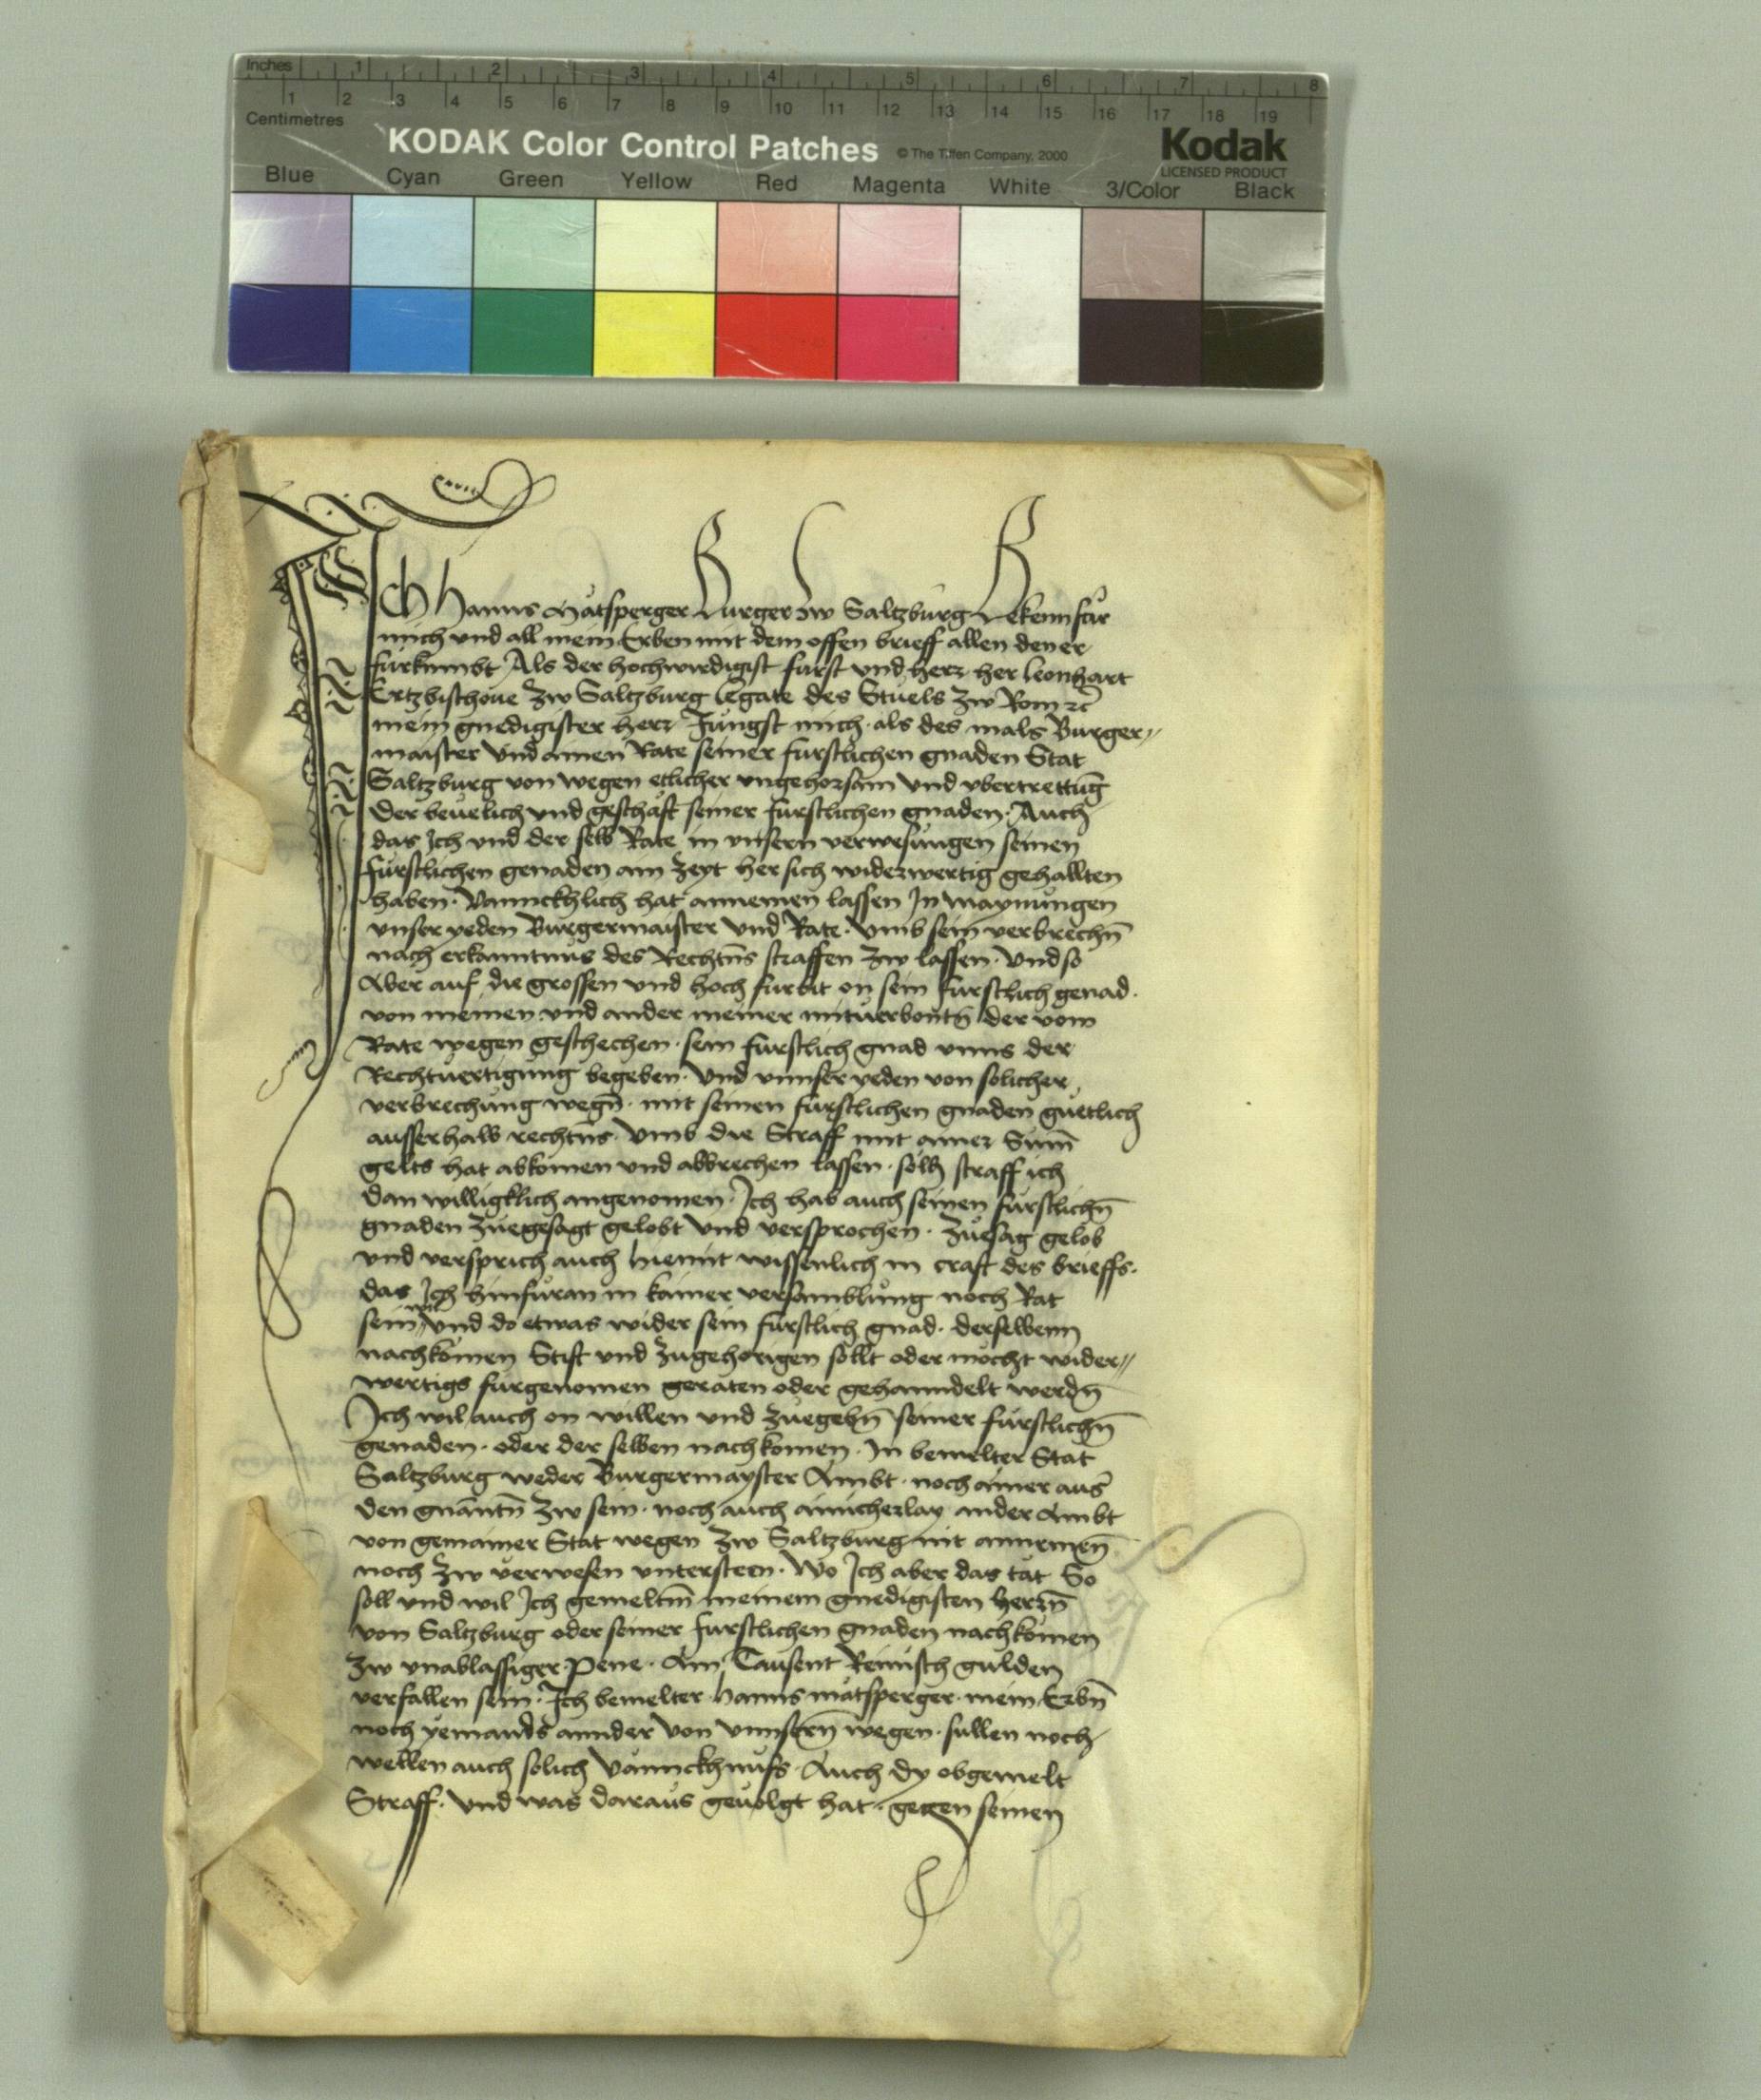 Inches 1 2 3 4 5 6 7 8
1 2 3 4 5 6 7 8 9 10 11 12 13 14 15 16 17 18 19
Centimetres
KODAK Color Control Patches © The Tiffen Company, 2000 Kodak
LICENSED PRODUCT
Blue Cyan Green Yellow Red Magenta White 3/Color Black
Ich Hanns Mätsperger Burger zw Saltzburg Bekenn für
mich und all mein Erben mit dem offen brieff allen den er
fürkumbt Als der hochwirdigist fürst und herr her Leonhart
Ertzbischoue zw Saltzburg Legate des Stuels zw Rom ꝛc
mein gnedigister herr Jüngst mich als des mals Burger„
maister und ainen Rate seiner fürstlichen gnaden Stat
Saltzburg von wegen etlicher ungehorsam und ubertrettūg
der beuelich und geschäft seiner fürstlichen gnaden. Auch
das Ich und der selb Rate in unsern verwesungen seinen
fürstlichen genaden ain Zeyt her sich widerwertig gehallten
haben. Vannckhlich hat annemen lassen In maynungen
unser yeden Burgermaister und Rate. umb sein verbrechn̄
nach erkanntnus des Rechtn̄s straffen zw lassen. Und so
Aber auf die grossen und hoch fürbit on sein fürstlich genad.
von meinen und ander meiner mituerbontn̄ der vom
Rate wegen geschechen. sein fürstlich gnad unns der
Rechtuertigung begeben. Und unnser yeden von solicher
verbrechung wegn̄. mit seinen fürstlichen gnaden guetlich
ausserhalb rechtn̄s. umb die Straff mit ainer Sum̄
gelts hat abkomen und abbrechen lassen. solh straff ich
dan willigklich angenomen. Ich hab auch seinen fürstlichn̄
gnaden zuegesagt gelobt und versprochen. Zuesag gelob
und versprich auch hiemit wissenlich in craft des brieffs.
das Ich hinfüran in kainer versamblung noch Rat
sein wil und do etwas wider sein fürstlich gnad. derselbenn
nachkomen Stift und zugehorigen sollt oder möcht wider„
wertigs fürgenomen geraten oder gehanndelt werdn̄
Ich wil auch on willen und zuegebn̄ seiner fürstlichn̄
genaden. oder der selben nachkomen. In bemelter Stat
Saltzburg weder Burgermayster Ambt. noch ainer aus
den gnantn̄ zw sein. noch auch ainicherlay ander Ambt
von gemainer Stat wegen zw Saltzburg nit annemen̄
noch zw verwesen untersteen. Wo Ich aber das tät So
soll und wil Ich gemeltm̄ meinem gnedigisten herrn̄
von Saltzburg oder seiner fürstlichen gnaden nachkomen
zw unablässiger Pene. Ain Tausent Reinisch gulden
verfallen sein. Ich bemelter Hanns mätsperger. mein Erbn̄
noch yemands annder von unnsern̄ wegen. sullen noch
wellen auch solich Vännckhnuss. Auch dy obgemelt
Straff. und was daraus geuolgt hat. gegen seinen